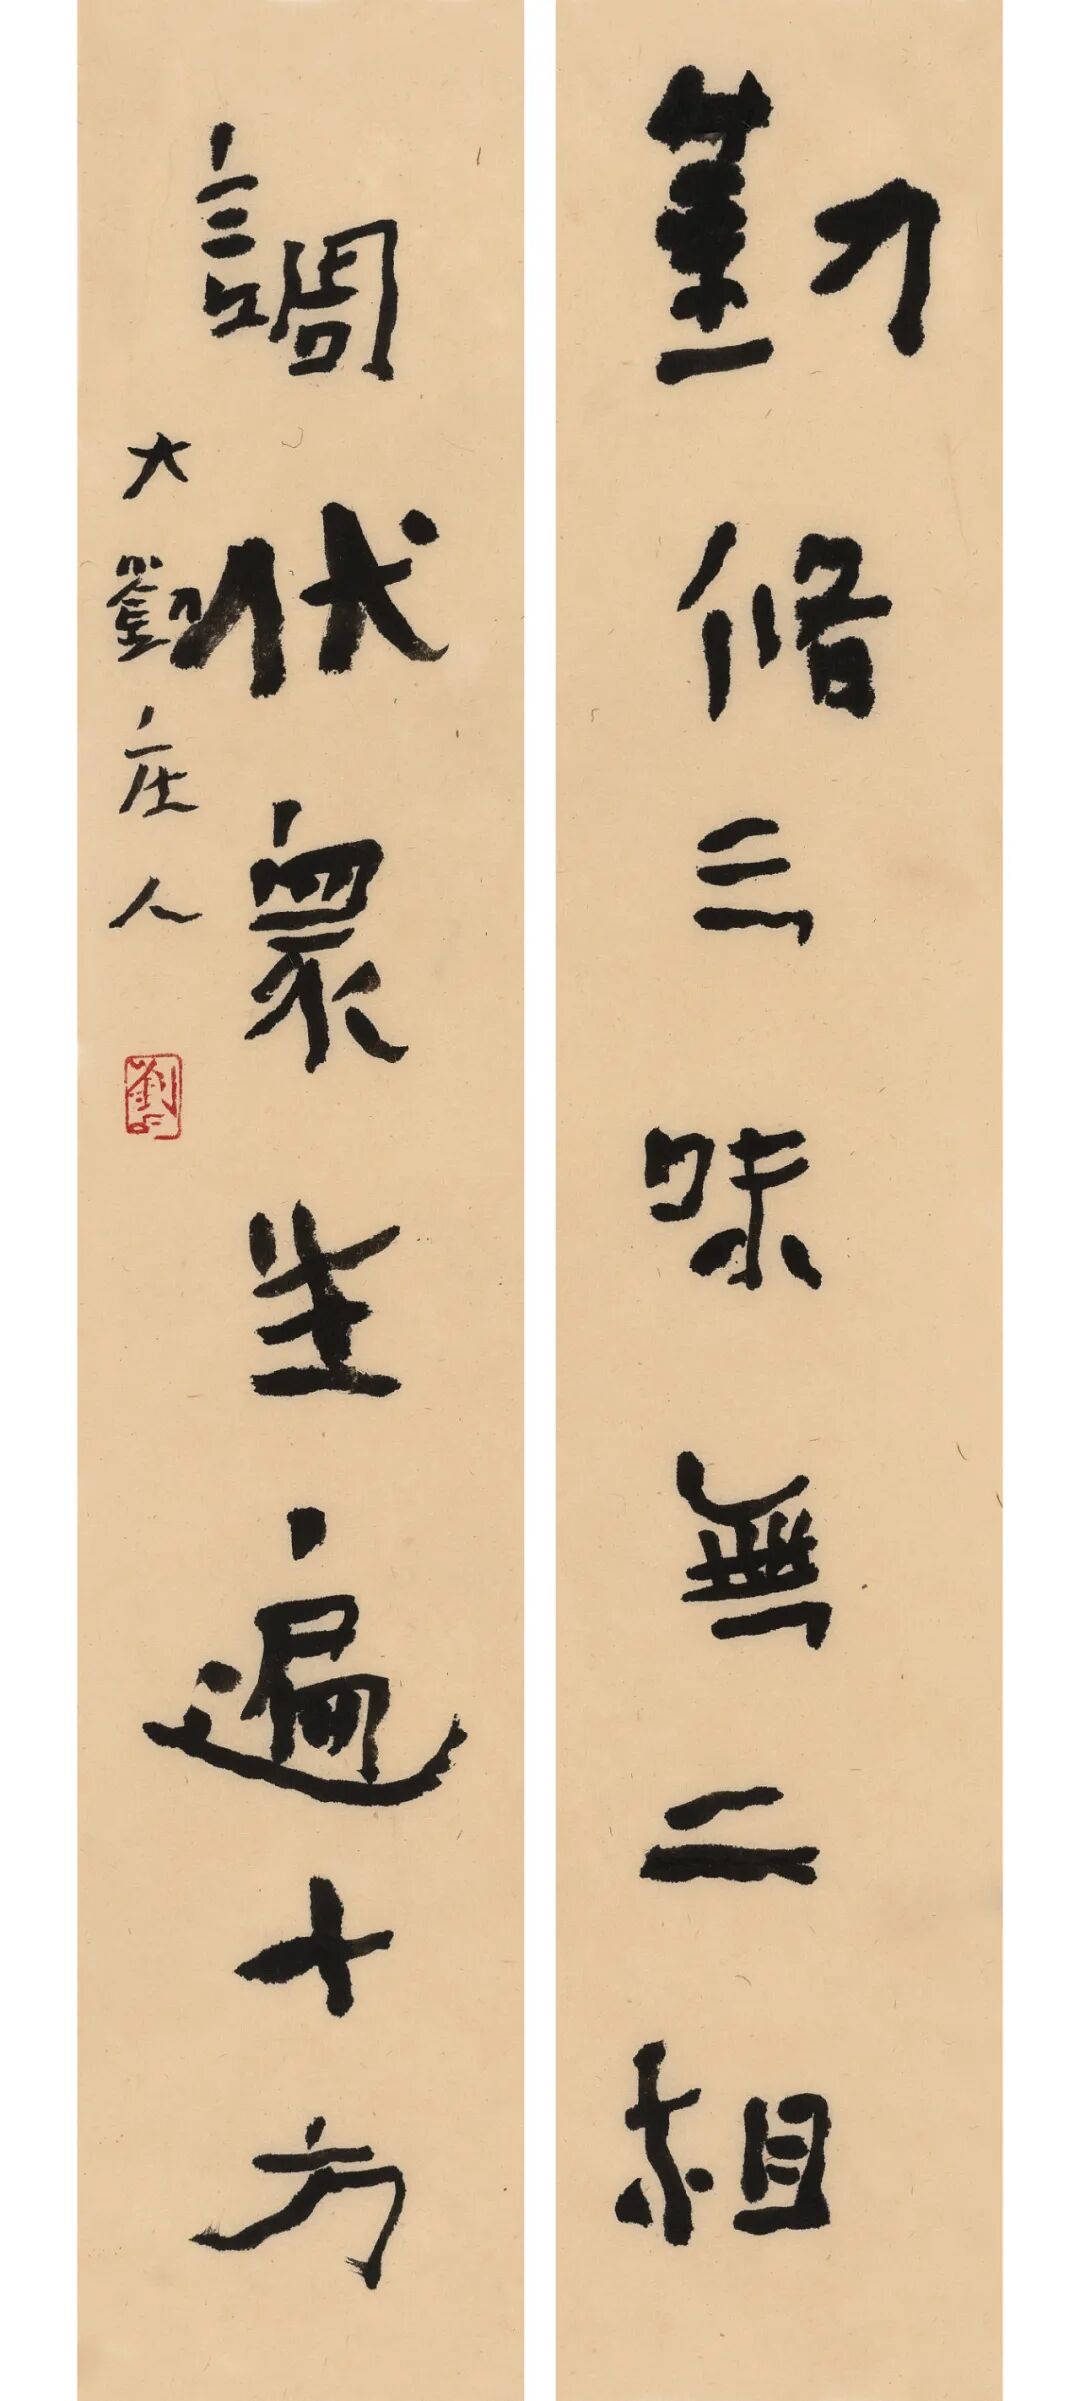 勤脩三昧無二相
調伏衆生遍十方
大劉庄人